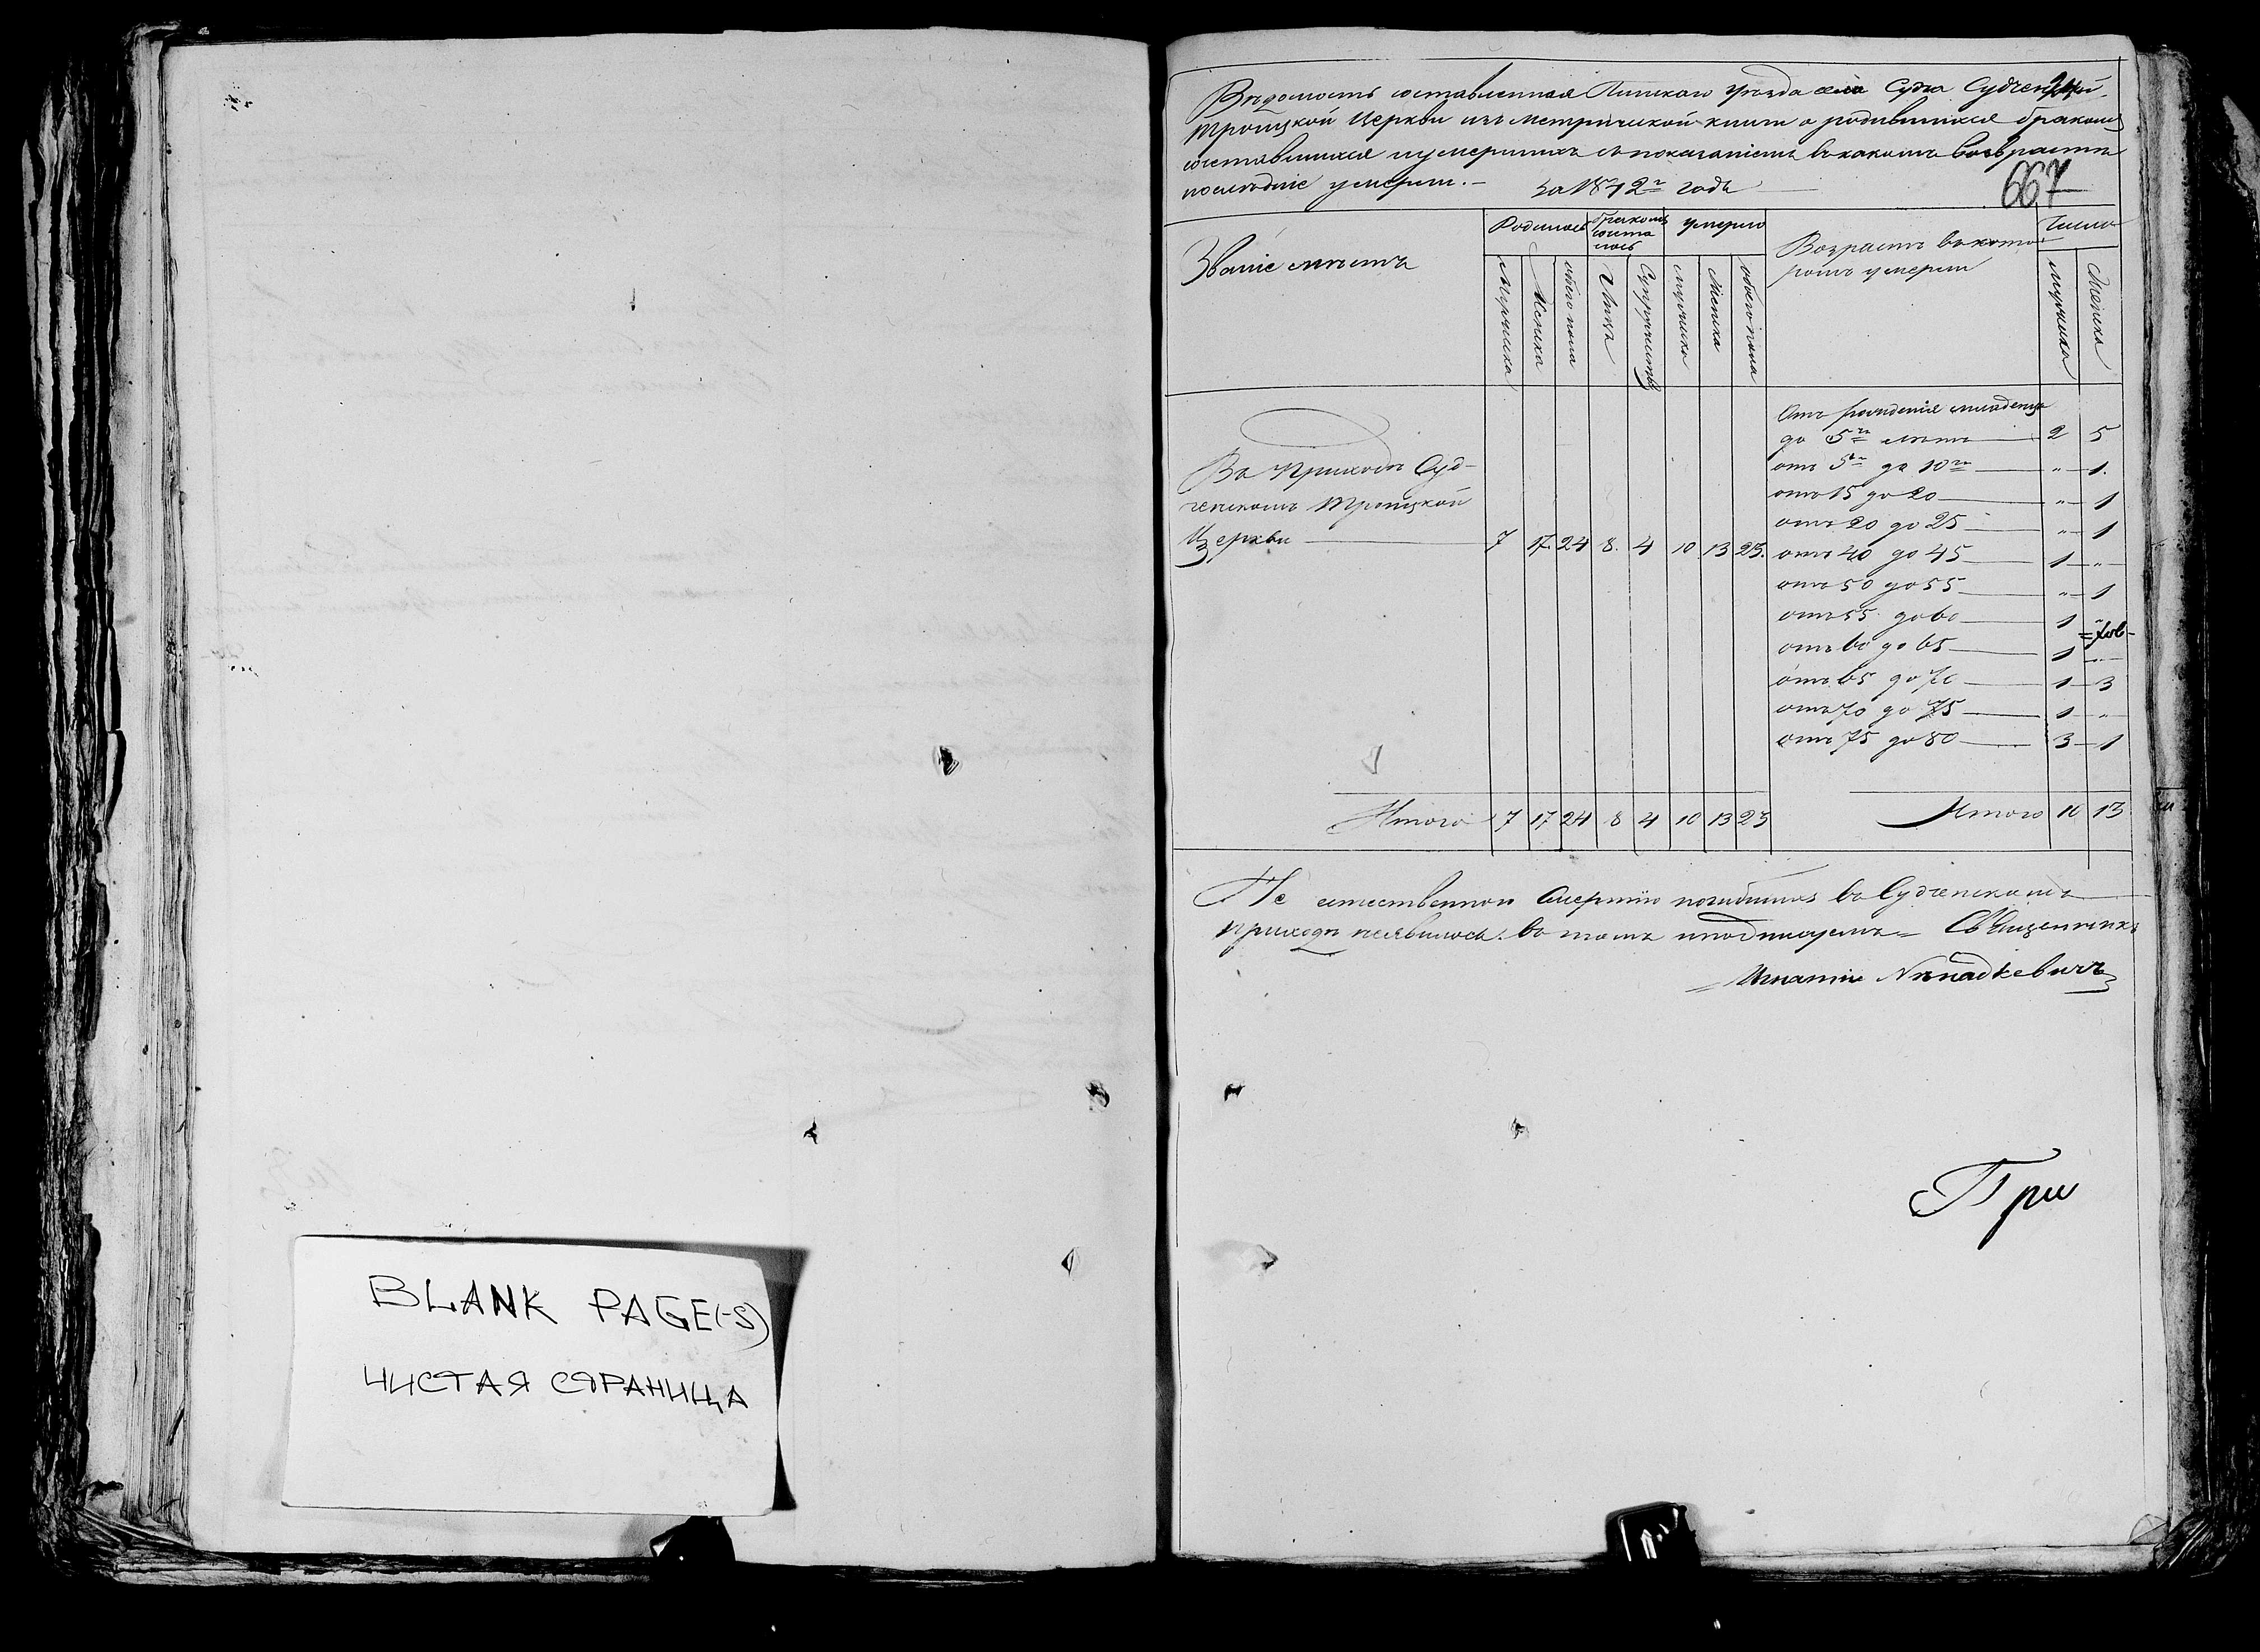 BLANK PAGE(-S)
ЧИСТАЯ СТРАНИЦА
Вѣдомость составленная Пинскаго уѣзда села Судча Судченской
Троицкой Церкви изъ метрической книги о родившихся бракомъ
сочетавшихся и умершихъ съ показаніемъ въ какомъ возврастѣ
послѣдніе умерли.– за 1872г годъ
667
Званіе мѣстъ
Родилось
бракомъ
сочта
лось
умерло
Возрастъ въ кото
ромъ умерли
Число
Мужчика
Женска
обоего пола
Лицъ
Супружествъ
мужчика
Женска
обоего пола
мужчика
Женска
Отъ рожденія младенца
до 5ти лѣтъ 2 5
отъ 5ти до 10ти „ 1.
отъ 15 до 20 „ 1
отъ 20 до 25 „ 1
отъ 40 до 45 1 „
отъ 50 до 55 „ 1
отъ 55 до 60 1 „
отъ 60 до 65 1 „
отъ 65 до 70 1 3
отъ 70 до 75 1 „
отъ 75 до 80 3 1
Въ Приходѣ Суд-
ченскомъ Троицкой
Церкви 7 17. 24 8. 4 10 13 23.
Итого 7 17 24 8 4 10 13 23
Итого 10 13
Не естественною смертію погибшихъ въ Судченскомъ
приходѣ неявилось. въ томъ и подписуемъ= Священникъ
Игнатій
При